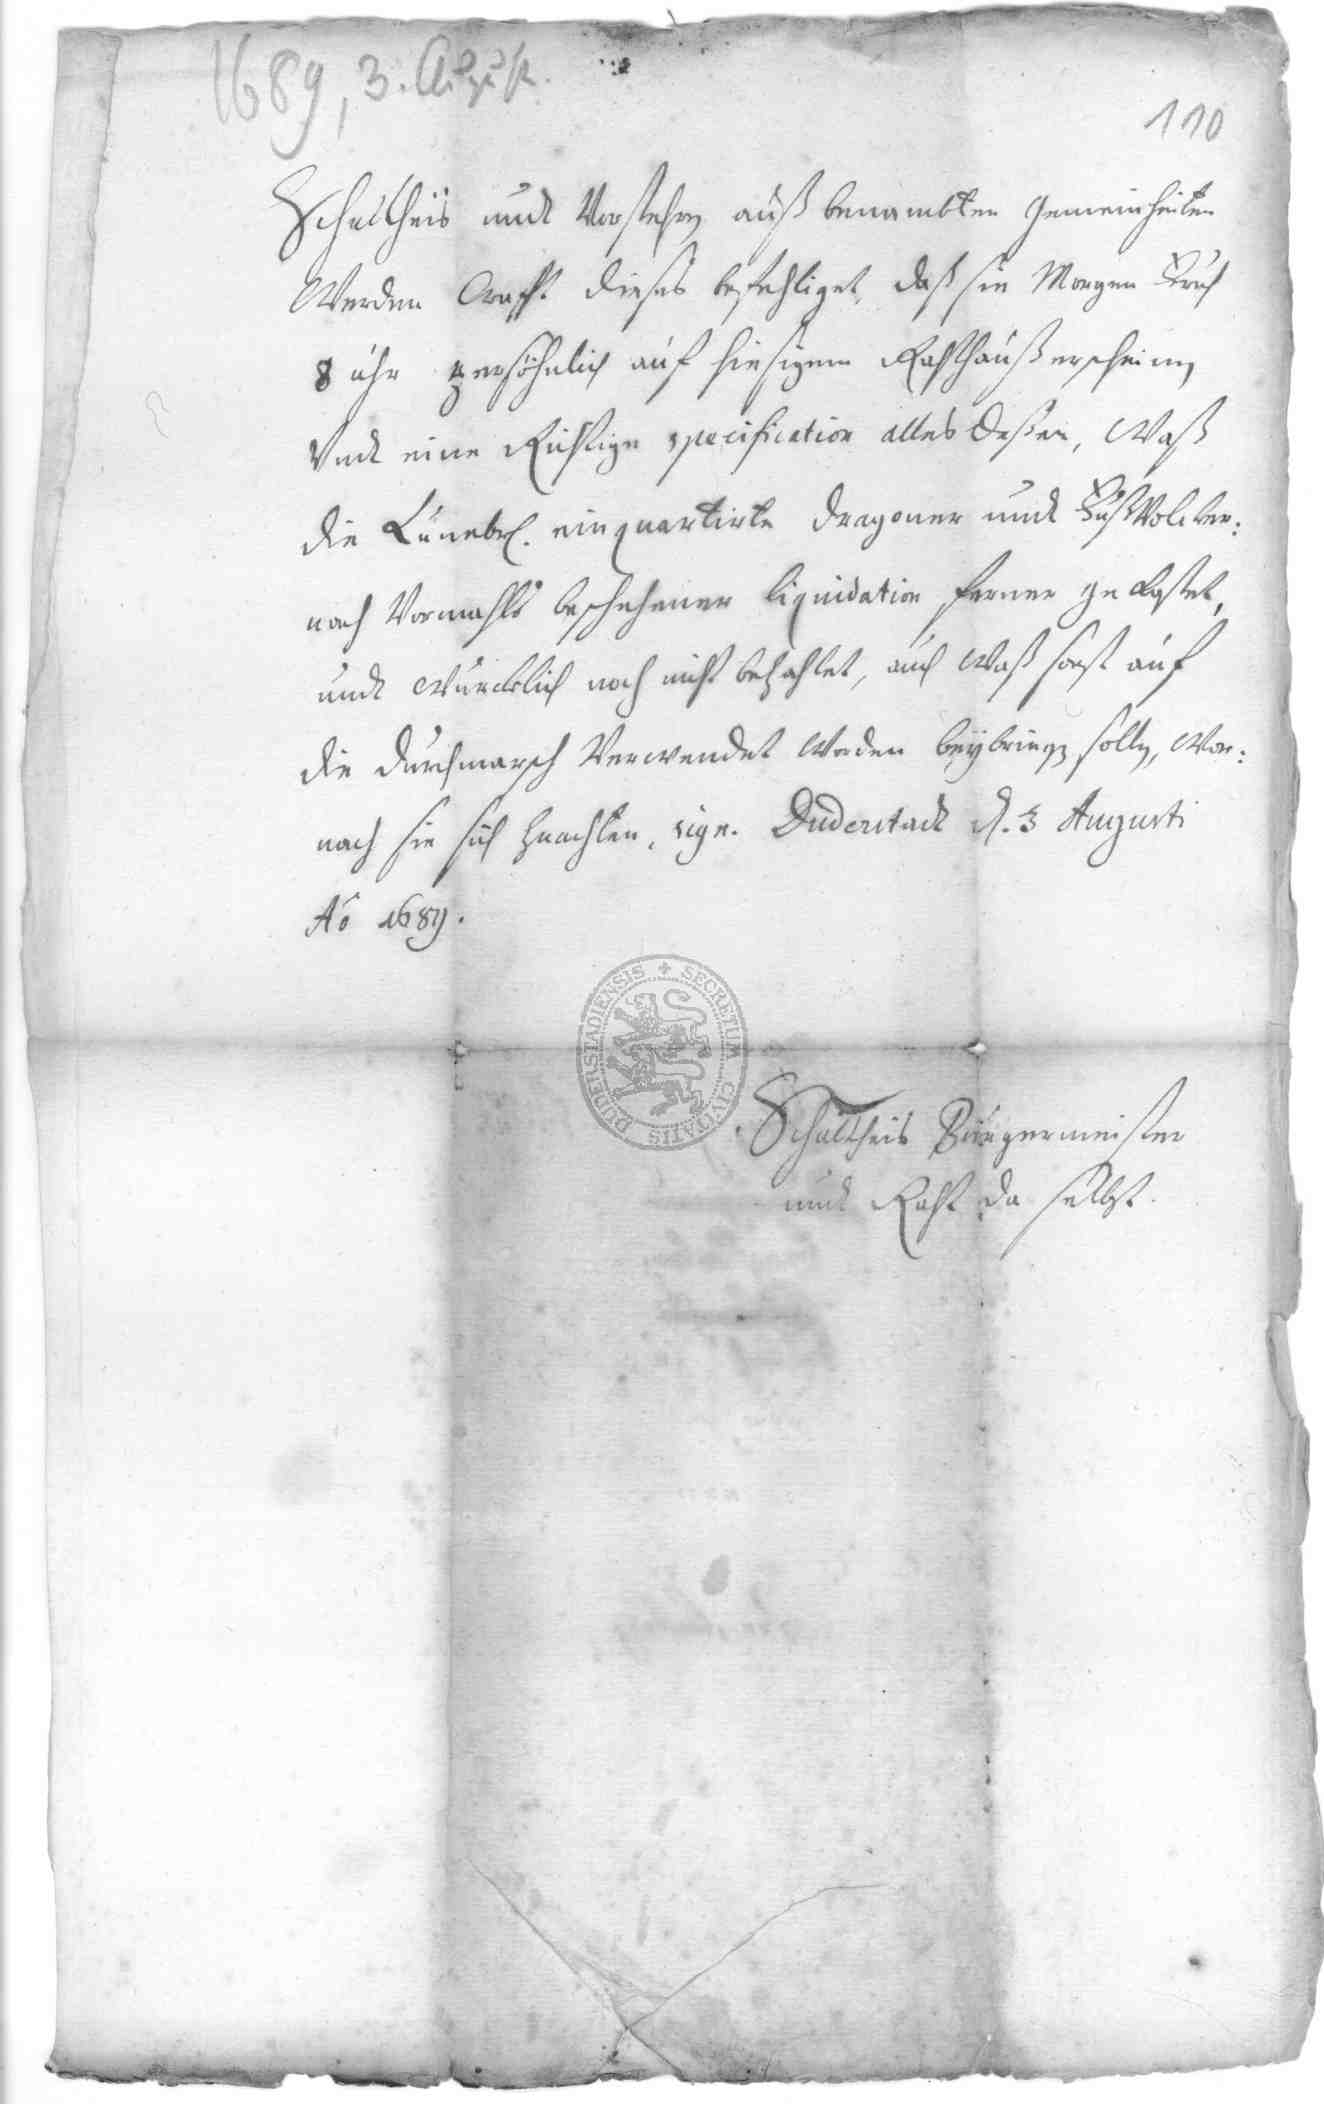 1689, 3. August.
110
Schultheis undt Vorstehere auß benambten Gemeinheiten
Werden Crafft dieses befehliget, daß sie Morgen Früh
8 uhr persöhnlich auf hiesigem Rahthauß erscheinen
Undt eine Richtige specification alles deßen, Waß
die Lünebl. einquartirte Dragoner undt Fuß Volcker
nach Vormahls beschehener liquidation ferner gekostet,
undt Würcklich noch nicht bezahlet, auch Waß sonst auf
die durchmarsch Verwendet Worden beÿbringen sollen, Wor:
nach sie sich zu achten, sign. Duderstadt d. 3 Augusti
Aõ 1689.
DUDERSTADIENSIS + SECRETUM CIVITATIS
Schultheis Bürgermeister
undt Raht da selbst.